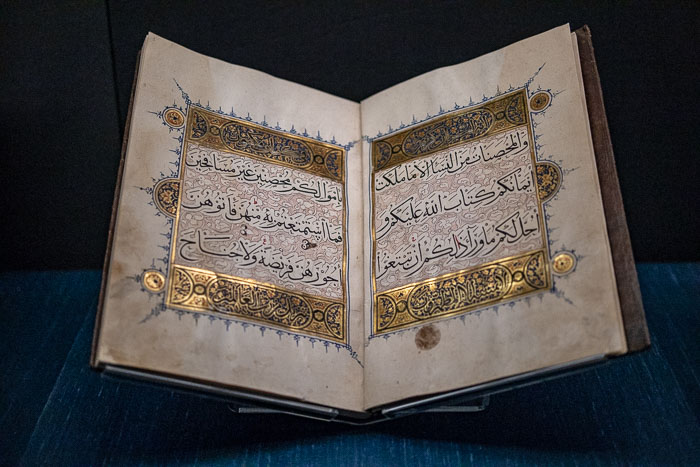 وَالمُحْصَنَاتُ مِنَ النِّسَاءِ اِلَّا مَا مَلَكَتْ
اَيْمَانُكُمْ كِتَابَ اللهِ عَلَيْكُمْ وَ
اُحِلَّ لَكُمْ مَا وَرَاءَ ذٰلِكُمْ اَنْ تَبْتَغُوا
لا يمسه الا المطهرون
بِاَمْوَالِكُمْ مُحْصِنِينَ غَيْرَ مُسَافِحِينَ
فَمَا اسْتَمْتَعْتُمْ بِهِ مِنْهُنَّ فَاٰتُوهُنَّ
اُجُورَهُنَّ فَرِيضَةً وَلَا جُنَاحَ
تنزيل من رب العالمين